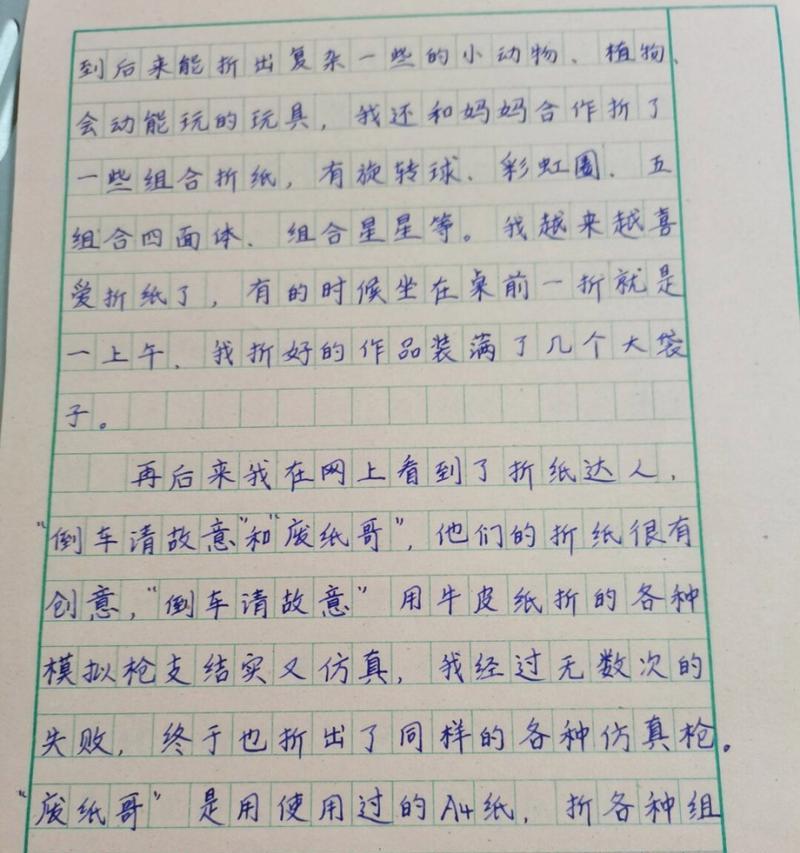 到后来能折出复杂一些的小动物、植物、
会动能玩的玩具，我还和妈妈合作折了
一些组合折纸，有旋转球、彩虹圈、五
组合四面体、组合星星等。我越来越喜
爱折纸了，有的时候坐在桌前一折就是
一上午、我折好的作品装满了几个大袋
子。
再后来我在网上看到了折纸达人，
“倒车请故意”和“废纸哥”，他们的折纸很有
创意，“倒车请故意”用牛皮纸折的各种
模拟枪支结实又仿真，我经过无数次的
失败，终于也折出了同样的各种仿真枪。
“废纸哥”是用使用过的A4纸，折各种组